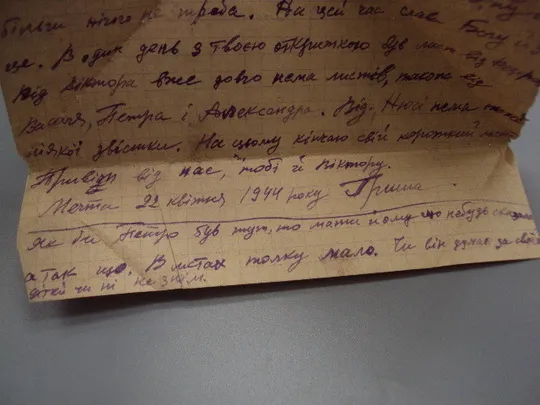 більш нічого не треба. На цей час слава Богу й за
це. В один день з твоєю откриткою був лист від
Від Віктора вже довго нема листів, також від
Василя, Петра і Александра. Від Нюсі нема
ніякої звістки. На цьому кінчаю свій короткий лист
Привіт від нас, тобі й Віктору.
22 квітня 1944 року Гриша.
Як би Петро був тут, то мати йому що небудь сказала
а так що. В листах толку мало. Чи він думає за свої
дітей чи ні не знім.